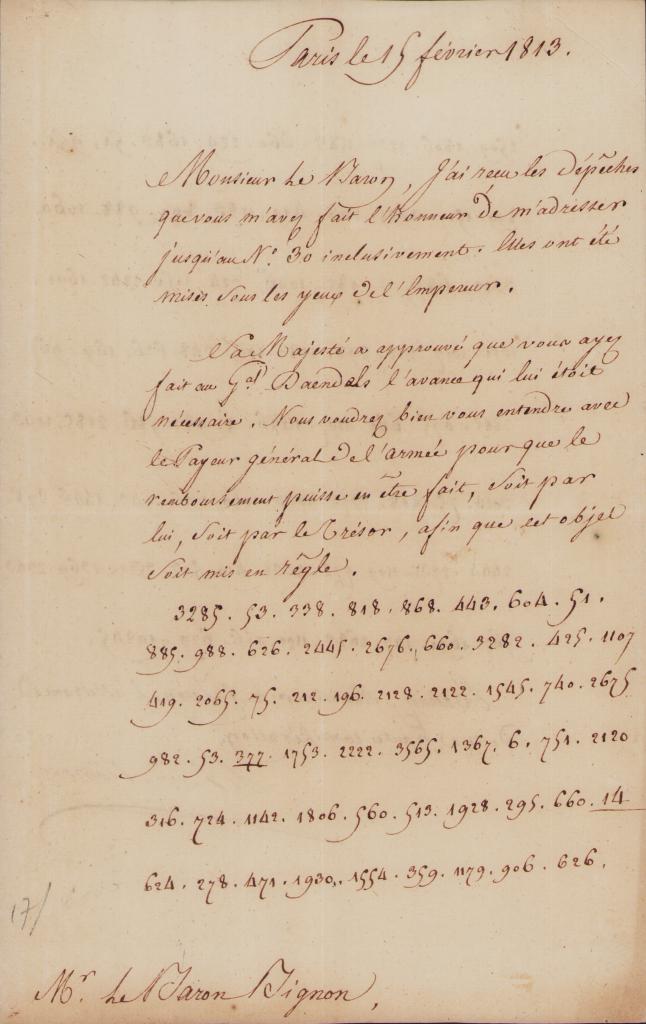 Paris le 15 février 1813.
Monsieur Le Baron, J'ai reçu les dépêches
que vous m'avez fait l'honneur de m'adresser
jusqu'au N.º 30 inclusivement. Elles ont été
mises sous les yeux de l'Empereur.
Sa Majesté a approuvé que vous ayez
fait au G.al Daendels l'avance qui lui étoit
nécessaire. Vous voudrez bien vous entendre avec
le Payeur général de l'armée pour que le
remboursement puisse en être fait, soit par
lui, soit par le Trésor, afin que cet objet
soit mis en règle.
3285. 53. 338. 818. 868. 443. 604. 51.
885. 988. 626. 2445. 2676. 660. 3282. 425. 1107
419. 2065. 75. 212. 196. 2128. 2122. 1545. 740. 2675
982. 53. 377. 1753. 2222. 3565. 1367. 6. 751. 2120
316. 724. 1142. 1806. 560. 513. 1928. 295. 660. 14
624. 278. 471. 1930. 1554. 359. 1179. 906. 626.
17/
M.r Le Baron Bignon,